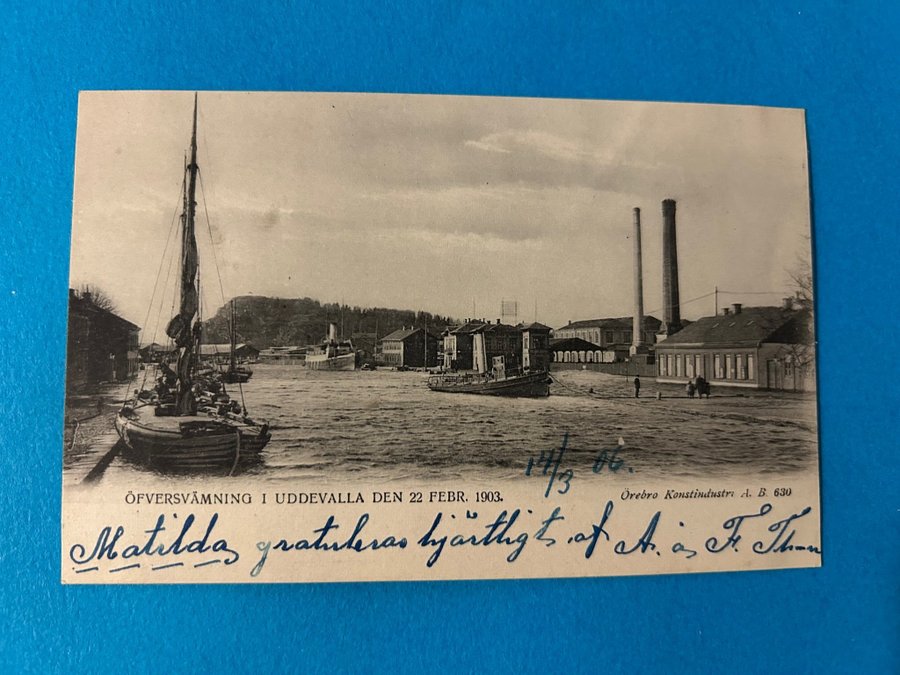 14/3 06.
ÖFVERSVÄMNING I UDDEVALLA DEN 22 FEBR. 1903.
Örebro Konstindustri A. B. 630
Matilda, gratuleras hjärtligt af A. å F. Th